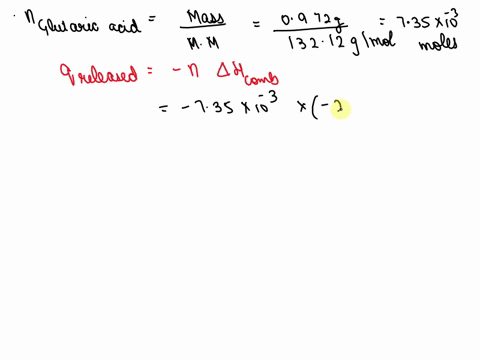 · n Glutaric acid = Mass / M.M = 0.972g / 132.12 g/mol = 7.35 × 10⁻³ moles
q released = - n ΔH comb
= - 7.35 × 10⁻³ × (-